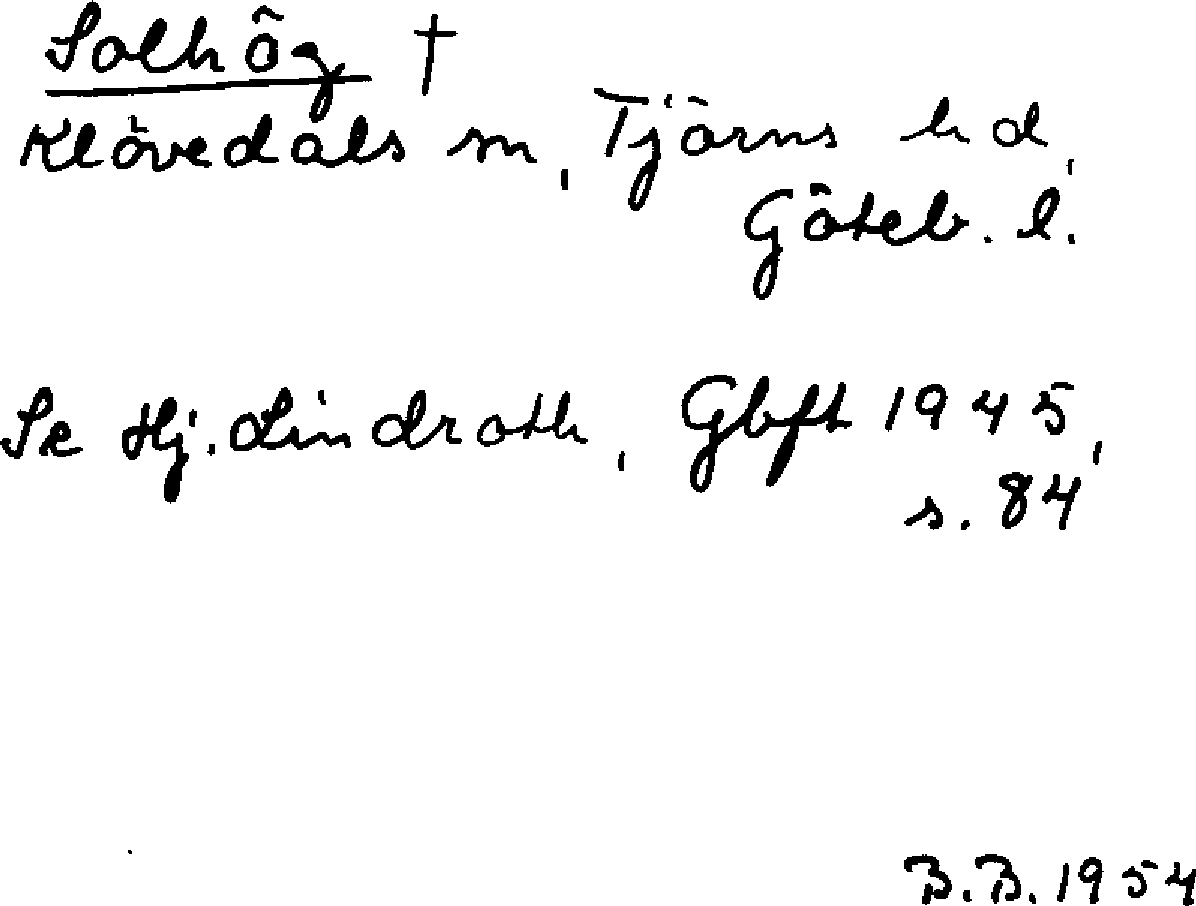 Solhög †
Klövedals sn, Tjörns hd,
Göteb. l.
Se Hj. Lindroth, Gbft 1945,
s. 84
B.B. 1954